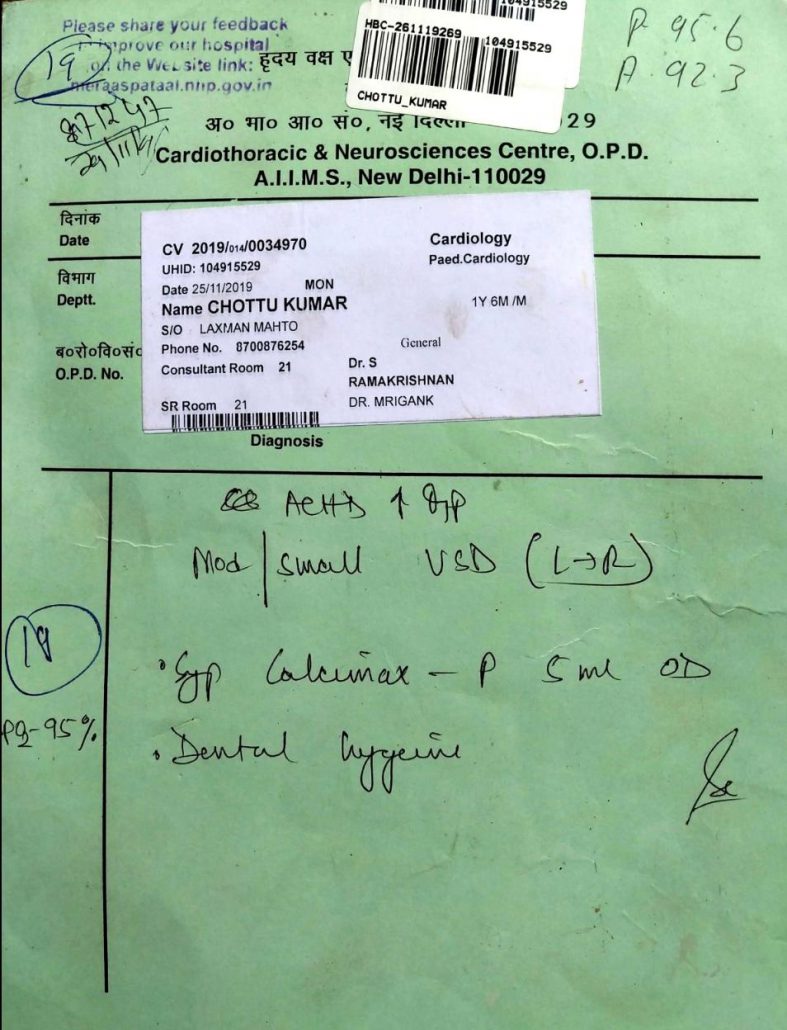 Please share your feedback
improve our hospital
on the Web site link:
meraaspataal.nhp.gov.in
19
104915529
HBC-261119269 104915529
CHOTTU_KUMAR
P 95.6
A 92.3
हृदय वक्ष
अ० भा० आ० सं०, नई दिल्ली 29
Cardiothoracic & Neurosciences Centre, O.P.D.
A.I.I.M.S., New Delhi-110029
दिनांक
Date
विभाग
Deptt.
ब०रो०वि०सं०
O.P.D. No.
CV 2019/014/0034970 Cardiology
UHID: 104915529 Paed.Cardiology
Date 25/11/2019 MON
Name CHOTTU KUMAR 1Y 6M /M
S/O LAXMAN MAHTO
Phone No. 8700876254 General
Consultant Room 21 Dr. S
RAMAKRISHNAN
SR Room 21 DR. MRIGANK
Diagnosis
ACHD ↑
Mod/small VSD (L→R)
19
• Syp Calcimax - P 5 ml OD
95%
• Dental hygeine